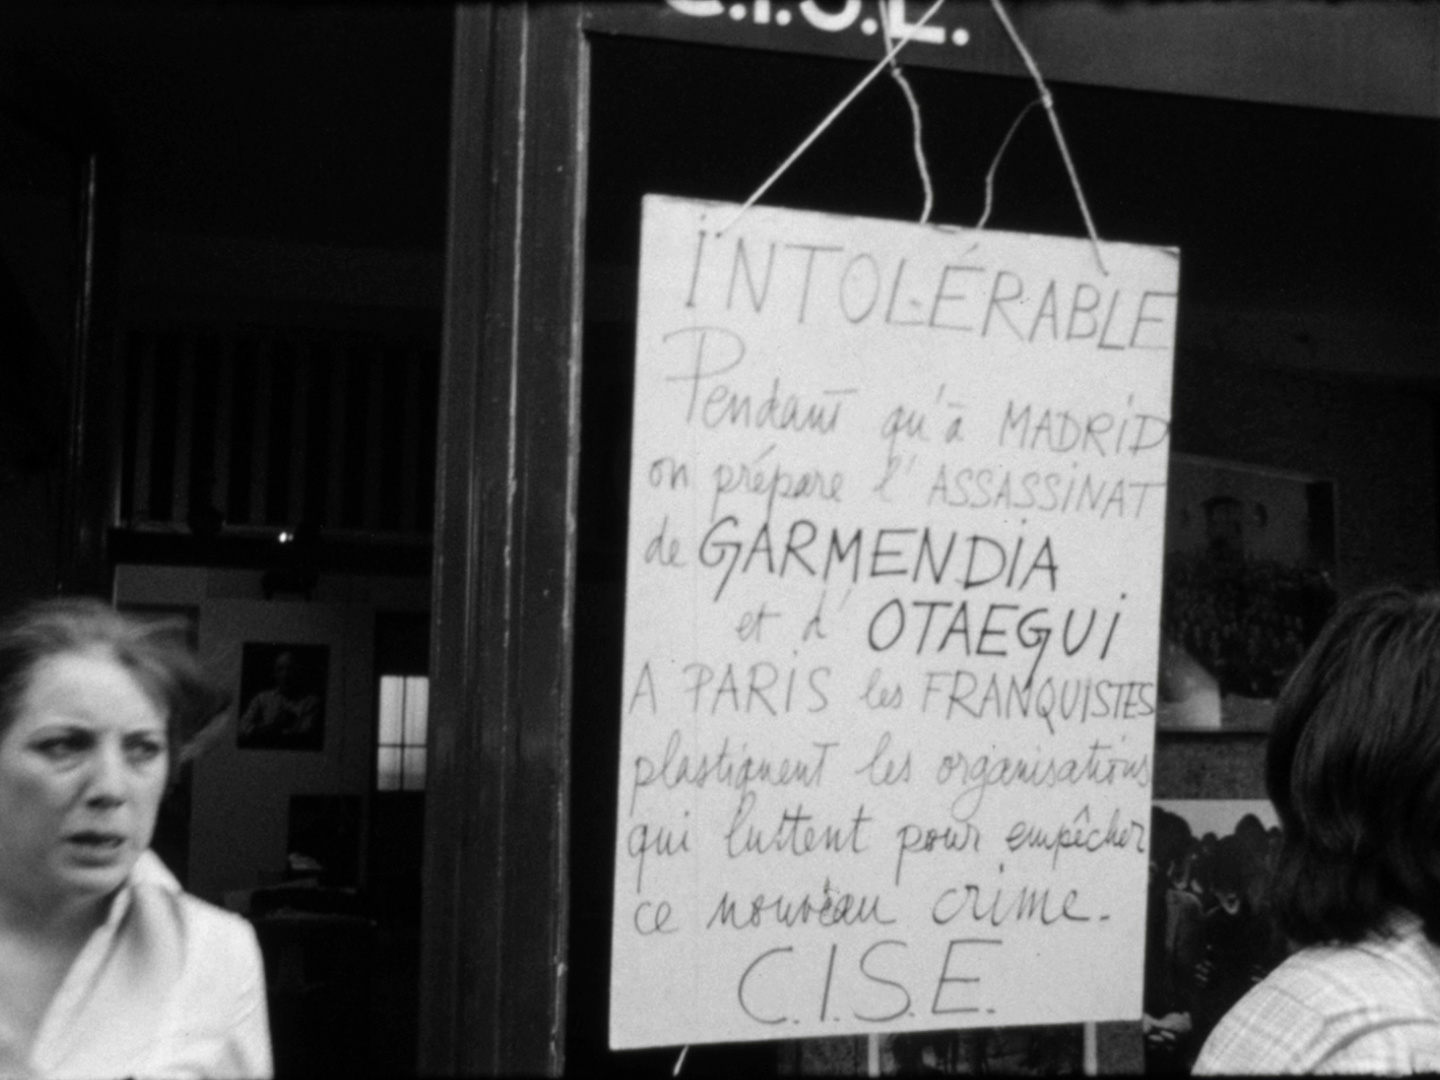 C.I.S.E.
INTOLÉRABLE
Pendant qu'à MADRID
on prépare l'ASSASSINAT
de GARMENDIA
et d'OTAEGUI
A PARIS les FRANQUISTES
plastiquent les organisations
qui luttent pour empêcher
ce nouveau crime.
C.I.S.E.